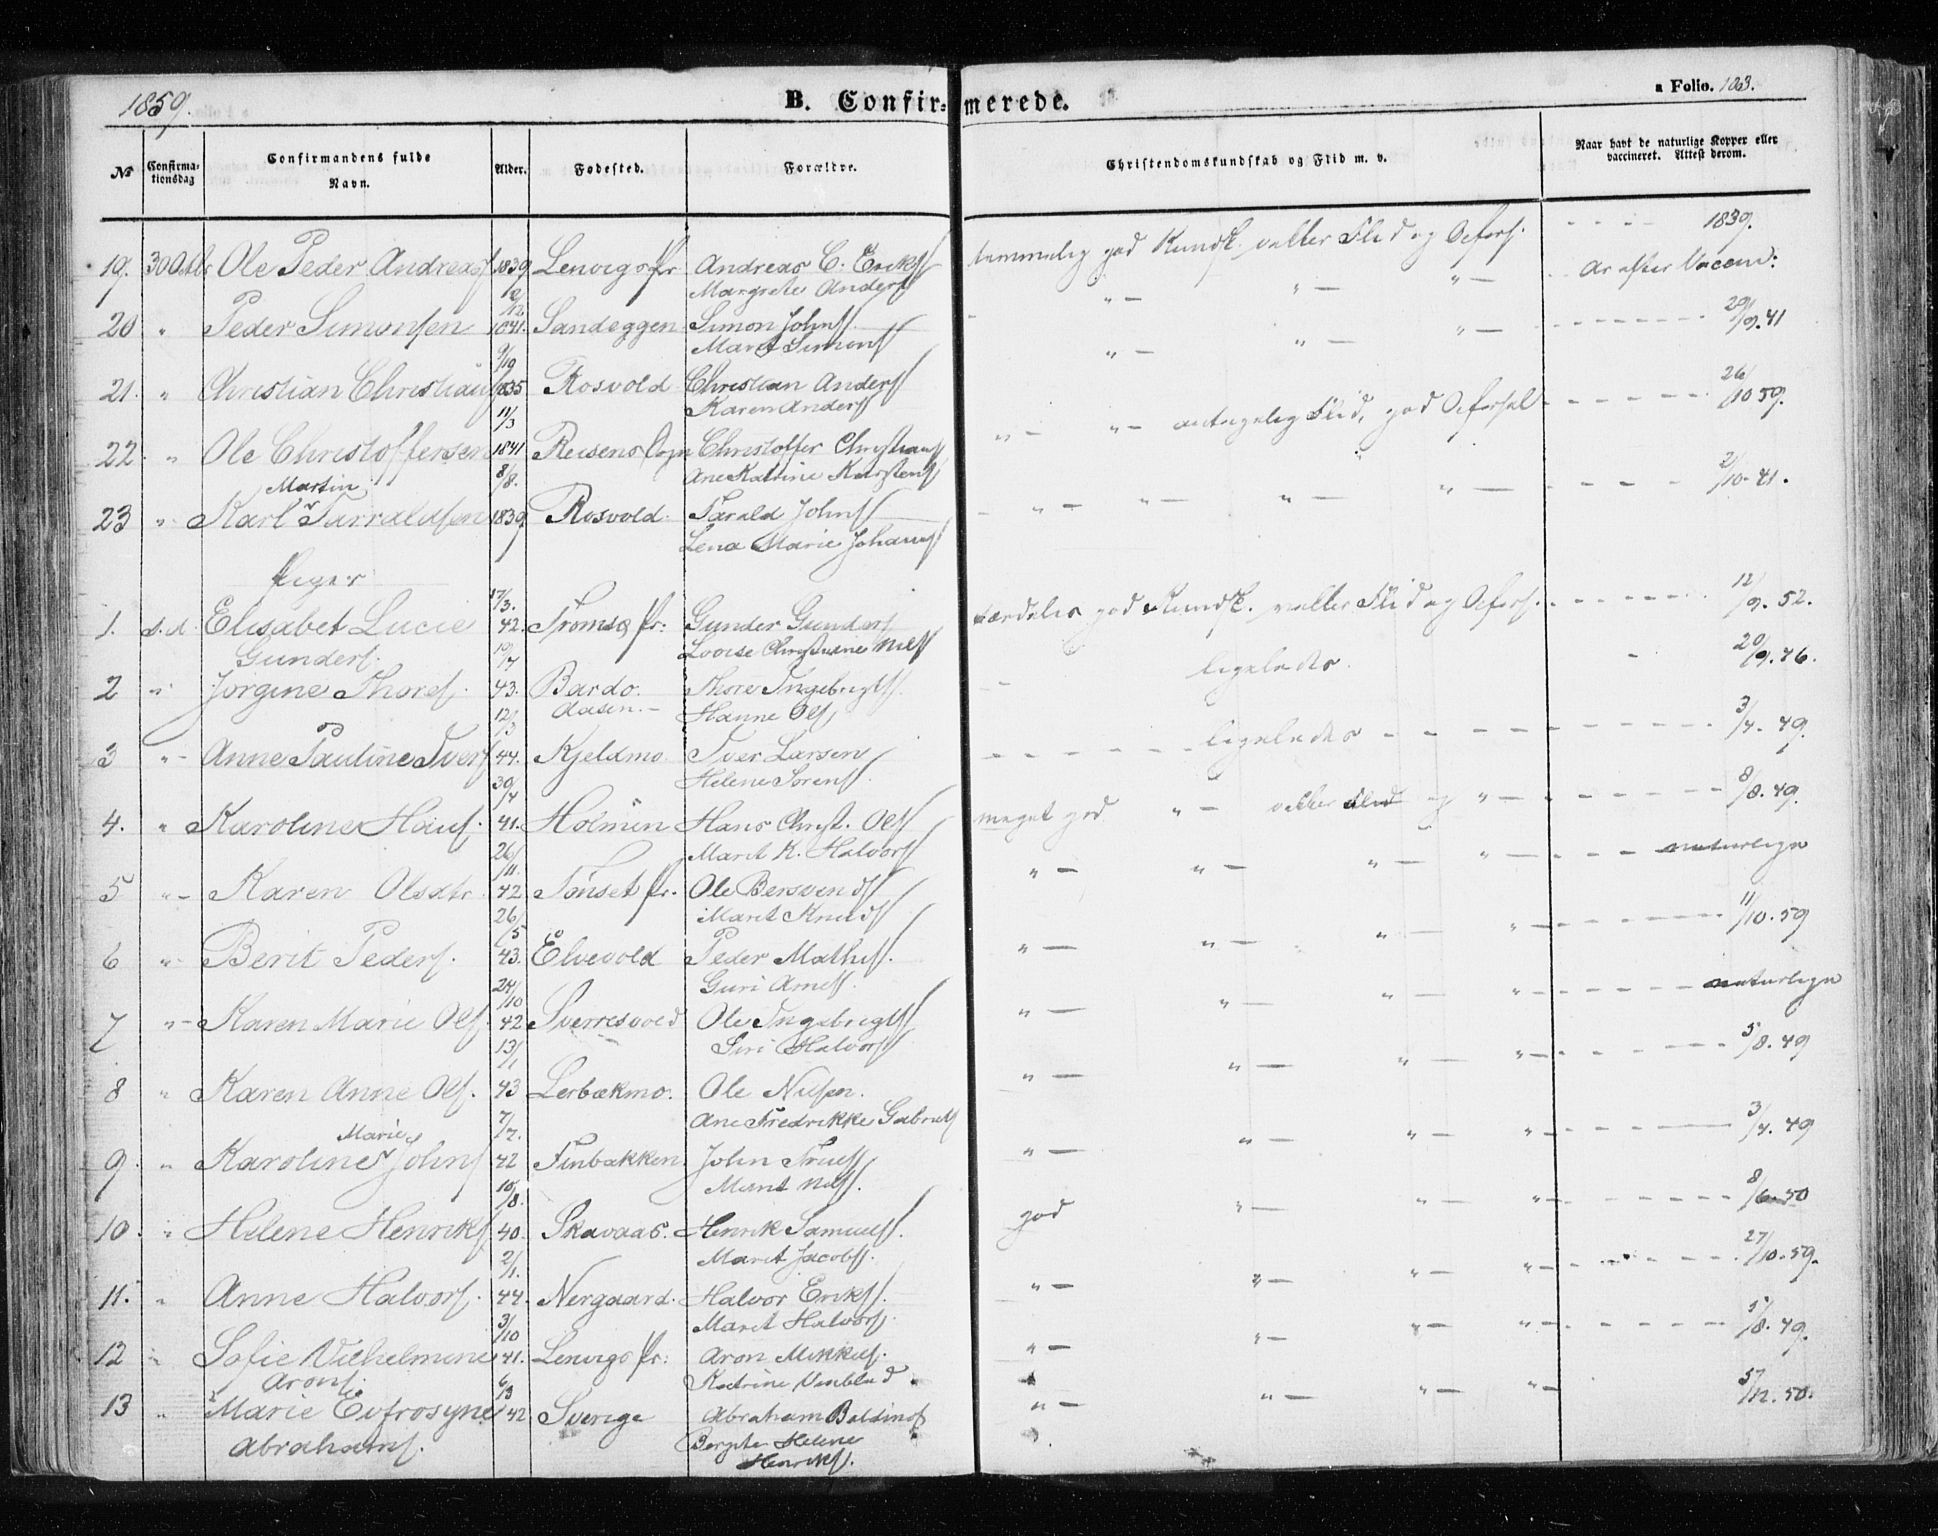 1859.
B. Confirmerede.
Folio. 103.
No
Confirmationsdag
Confirmandens fulde Navn.
Alder.
Fødested.
Forældre.
Christendomskundskab og Flid m. v.
Naar havt de naturlige Kopper eller vaccineret. Attest derom.
19. 30 Octbr Ole Peder Andreass 1839 Lenvigs Pr Andreas C. Eriks temmelig god Kundsk. - - - - 1839.
Margrete Anders
20 " Peder Simonsen 1841. Sandeggen Simon Johns " — " — " —
Marit Simons 29/9. 41
9/10
21. " Christian Christians 1835 Rosvold Christian Anders " — " — " —
Karen Anders 26/10 59.
11/3
22. " Ole Christoffersen 1841 Reisens Sogn Christoffer Christians " — " — antagelig Flid, god Opførsel
Ane Katrine Karstens
8/8. 2/10. 41.
Martin
23 " Karl Tarraldsen 1839 Rosvold Tarald Johns " — " — " — " —
Lena Marie Johans
Piger
17/3.
1. d. d. Elisabet Lucie 42. Tromsø Pr: Gunder Gunders særdeles god Kundsk. 12/9. 52.
Gunders Lovise Christine Niels
2 " Jørgine Thores 43. Bardo. Thore Ingebrigts ligeledes. 20/9. 46.
Aasen. Hanne Ols
12/3
3 " Anne Pauline Ivers 44. Kjeldmo Iver Larsen ligeledes 3/7. 49.
Helene Sørens
30/4
4. " Karoline Hans 41. Holmen Hans Christ. Ols meget god " — og " — 8/8. 49.
Marit K. Halvors
26/11.
5 " Karen Olsdtr 42 Tønset Pr. Ole Bersvends " — " — " — " — naturlige
Marit Knuds
26/5
6 " Berit Peders. 43. Elvevold Peder Mathis. " — " — " — " — 11/10. 59
Guri Arnes.
24/10
7 " Karen Marie Ols. 42 Sverresvold Ole Ingebrigts " — " — " — " — naturlige
Siri Halvors
13/1
8 " Karen Anne Ols. 43 Lerbækmo. Ole Nilsen. " — " — " — " — 5/8. 49
Ane Fredrikke Gabriels
7/7.
Marie
9 " Karoline Johns 42 Finbakken. John Trues " — " — " — " — 3/7. 49
Marit Niels.
10/8.
10. " Helene Henriks 40. Skavaas. Henrik Samuels. god " — " — " — 8/6. 50
Marit Jacobs.
2/1.
11. " Anne Halvors. 44. Nergaard. Halvor Eriks. " — " — " — " — 27/10. 59.
Marit Halvors.
3/10
12 " Sofie Vilhelmine 41. Lenvigs Pr: Aron Mikkels. " — " — " — " — 5/8. 49.
Arons. Katrine
6/3
13 " Marie Eufrosyne 42 Sverige Abraham " — " — " — " — 5/12. 50.
Abrahams. Helene
Henriks.